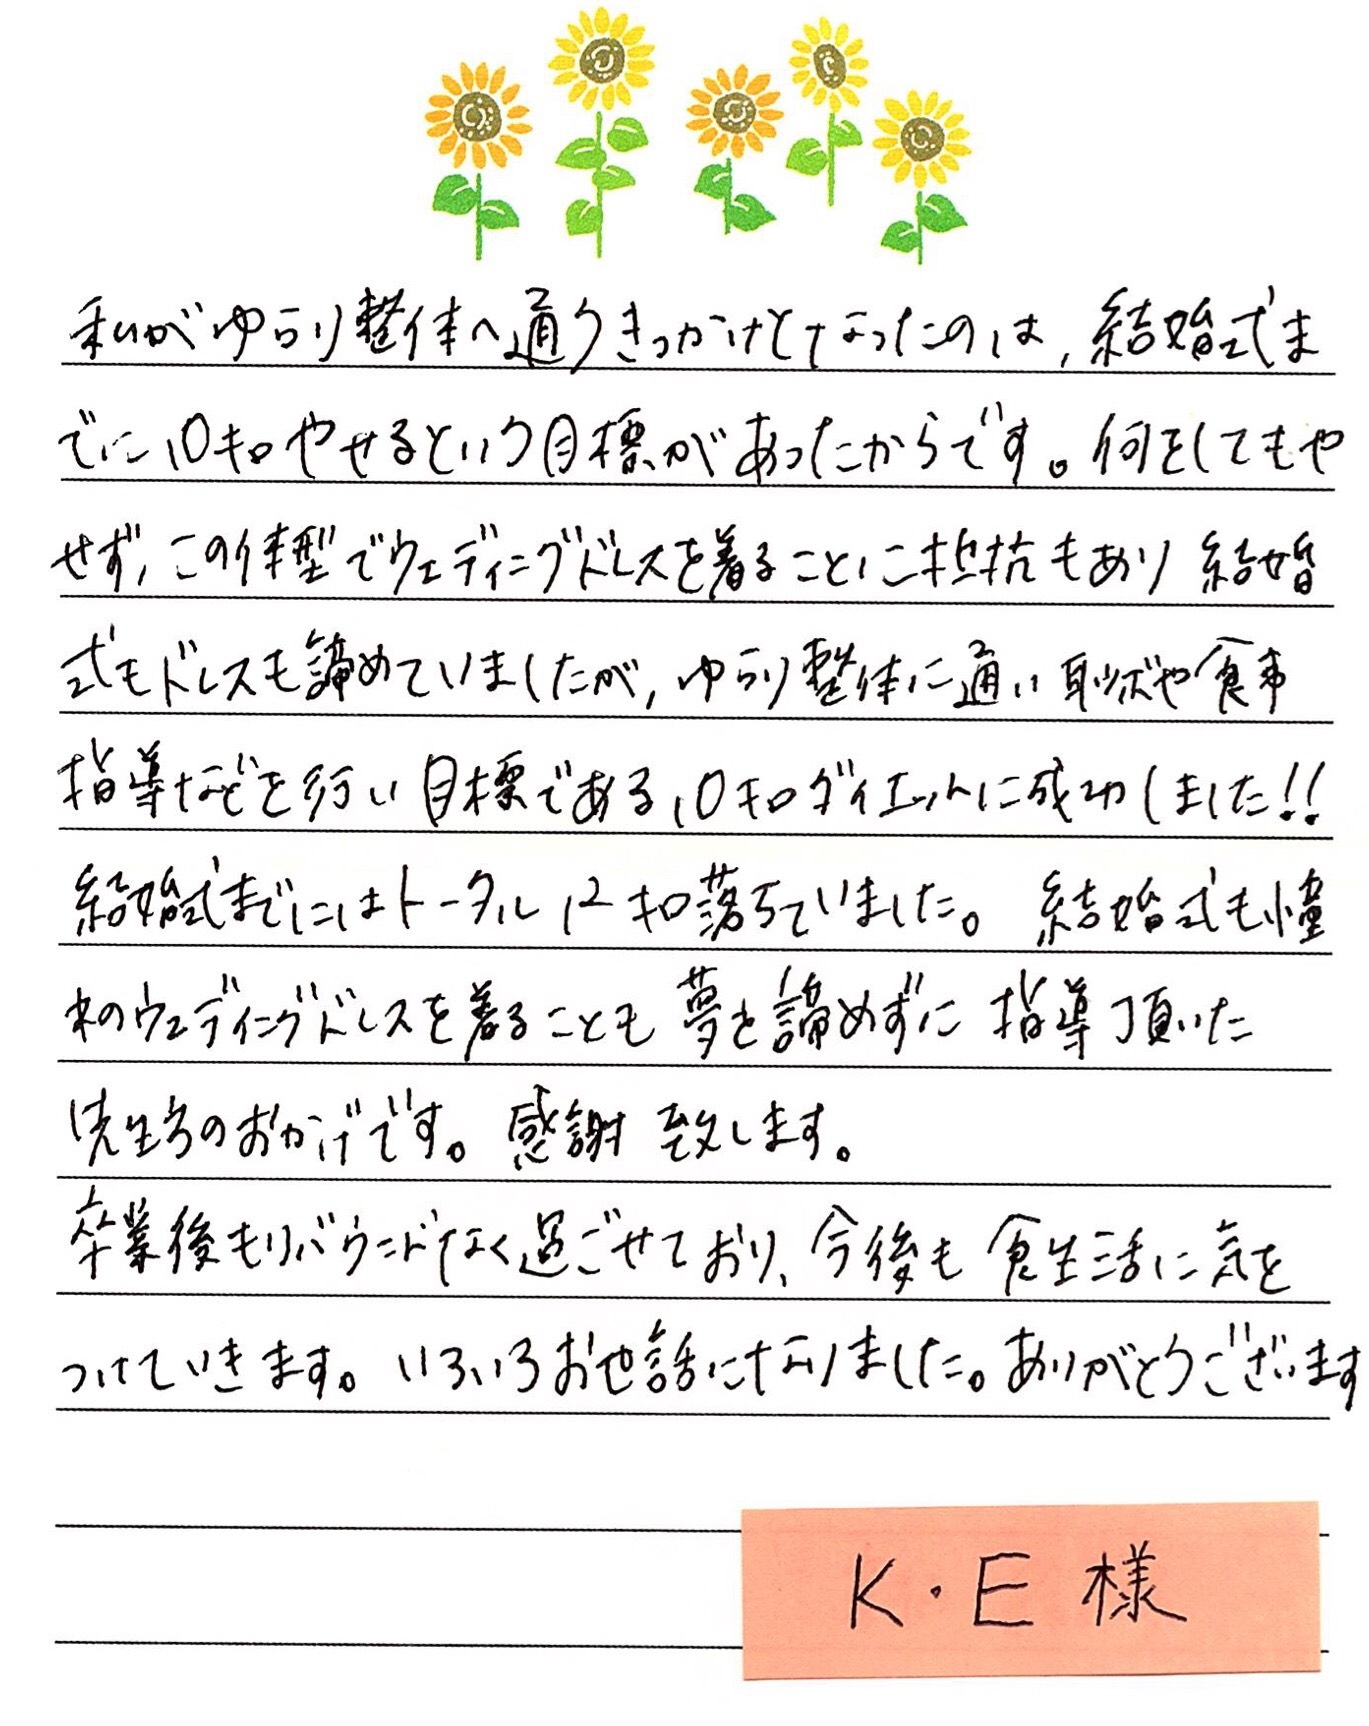 私がゆらり整体へ通うきっかけとなったのは、結婚式ま
でに10キロやせるという目標があったからです。何をしてもや
せず、この体型でウェディングドレスを着ることに抵抗もあり 結婚
式もドレスも諦めていましたが、ゆらり整体に通い 耳ツボや食事
指導などを行い 目標である10キロダイエットに成功しました!!
結婚式までにはトータル12キロ落ちていました。 結婚式も憧
れのウェディングドレスを着ることも 夢を諦めずに 指導頂いた
先生方のおかげです。 感謝 致します。
卒業後もリバウンドなく過ごせており、今後も 食生活に気を
つけていきます。いろいろお世話になりました。ありがとうございます
K・E 様